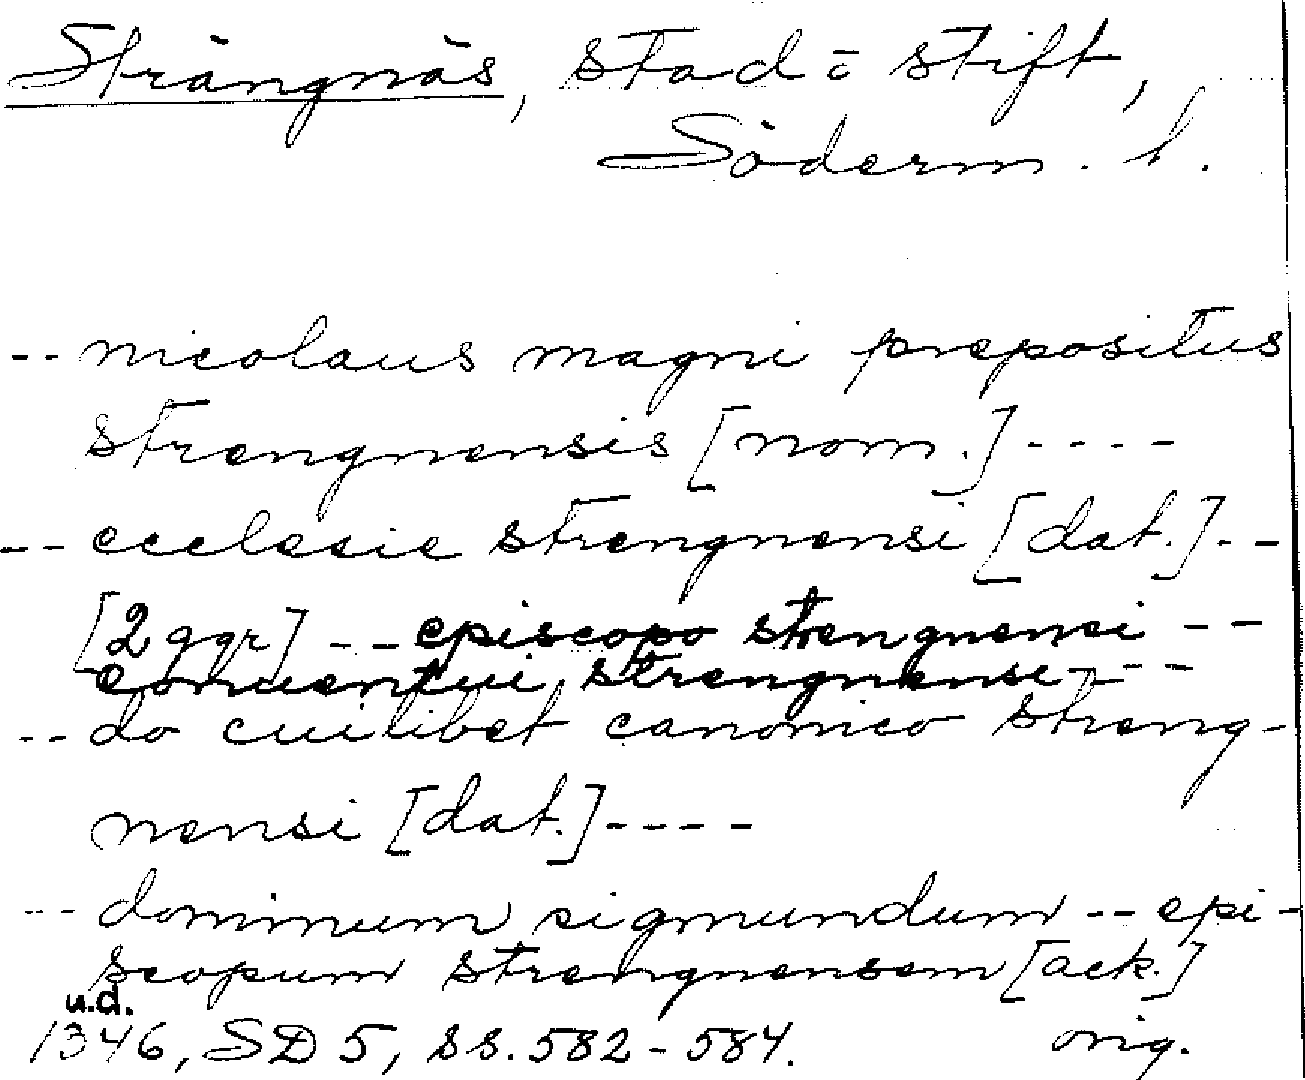 Strängnäs, stad o stift,
Söderm. l.
-- nicolaus magni prepositus
strengnensis [nom.] ----
-- ecclesie strengnensi [dat.] --
[2 ggr] -- episcopo strengnensi --
conuentui strengnensi ---
-- do cuilibet canonico streng-
nensi [dat.] ----
-- dominum sigmundum -- epi-
scopum strengnensem [ack.]
u.d.
1346, SD 5, ss. 582-584. orig.